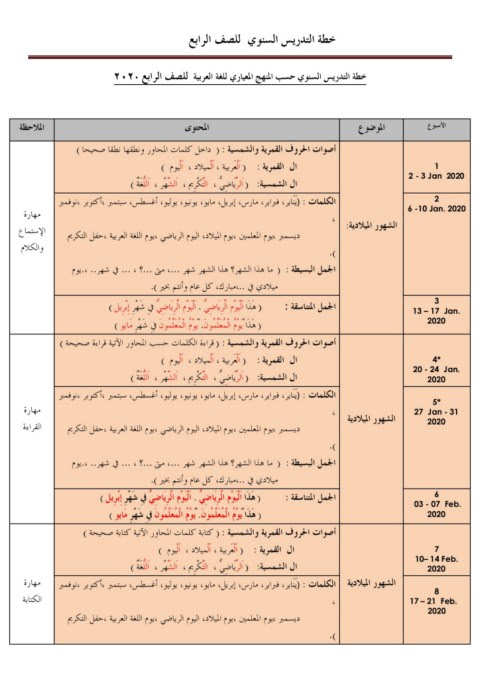 خطة التدريس السنوي للصف الرابع
خطة التدريس السنوي حسب المنهج المعياري للغة العربية للصف الرابع ٢٠٢٠
الأسبوع
الموضوع
المحتوى
الملاحظة
1
2 - 3 Jan 2020
2
6 -10 Jan. 2020
3
13 – 17 Jan.
2020
الشهور الميلادية:
أصوات الحروف القمرية والشمسية : ( داخل كلمات المحاور ونطقها نطقا صحيحا )
ال القمرية : ( اَلْعَرَبية ، اَلْميلاد ، اَلْيوم )
ال الشمسية: ( اَلرِّيَاضيُّ ، اَلتَّكْرِيم ، اَلشَّهْر ، اَللُّغَةُ )
الكلمات : (يَنَاير، فبراير، مارس، إبريل، مايو، يونيو، يوليو، أغسطس، سبتمبر ،أكتوبر ،نوفمبر
،
ديسمبر ،يوم المعلمين ،يوم الميلاد، اليوم الرياضي ،يوم اللغة العربية ،حفل التكريم
).
الجمل البسيطة : ( ما هذا الشهر؟ هذا الشهر شهر ...، متى ...؟ ، ... في شهر.. ،.يوم
ميلادي في ..،مبارك، كل عام وأنتم بخير ).
الجمل المتناسقة : ( هَذَا اَلْيَوْمُ الْرِيَاضِيُّ . اَلْيَوْمُ الْرِيَاضِيُّ فِي شَهْرِ إِبْرِيل )
( هَذَا يَوْمُ الْمُعَلِّمُونَ. يَوْمُ الْمُعَلِّمُونَ فِي شَهْرِ مَايو )
مهارة
الإستماع
والكلام
4*
20 - 24 Jan.
2020
5*
27 Jan - 31
2020
6
03 - 07 Feb.
2020
الشهور الميلادية
أصوات الحروف القمرية والشمسية : ( قراءة الكلمات حسب المحاور الآتية قراءة صحيحة )
ال القمرية : ( اَلْعَرَبية ، اَلْميلاد ، اَلْيوم )
ال الشمسية: ( اَلرِّيَاضيُّ ، اَلتَّكْرِيم ، اَلشَّهْر ، اَللُّغَةُ )
الكلمات : (يَنَاير، فبراير، مارس، إبريل، مايو، يونيو، يوليو، أغسطس، سبتمبر ،أكتوبر ،نوفمبر
،
ديسمبر ،يوم المعلمين ،يوم الميلاد، اليوم الرياضي ،يوم اللغة العربية ،حفل التكريم
).
الجمل البسيطة : ( ما هذا الشهر؟ هذا الشهر شهر ...، متى ...؟ ، ... في شهر.. ،.يوم
ميلادي في ..،مبارك، كل عام وأنتم بخير ).
الجمل المتناسقة : ( هَذَا اَلْيَوْمُ الْرِيَاضِيُّ . اَلْيَوْمُ الْرِيَاضِيُّ فِي شَهْرِ إِبْرِيل )
( هَذَا يَوْمُ الْمُعَلِّمُونَ. يَوْمُ الْمُعَلِّمُونَ فِي شَهْرِ مَايو )
مهارة
القراءة
7
10– 14 Feb.
2020
8
17 – 21 Feb.
2020
الشهور الميلادية
أصوات الحروف القمرية والشمسية : ( كتابة كلمات المحاور الآتية كتابة صحيحة )
ال القمرية : ( اَلْعَرَبية ، اَلْميلاد ، اَلْيوم )
ال الشمسية: ( اَلرِّيَاضيُّ ، اَلتَّكْرِيم ، اَلشَّهْر ، اَللُّغَةُ )
الكلمات : (يَنَاير، فبراير، مارس، إبريل، مايو، يونيو، يوليو، أغسطس، سبتمبر ،أكتوبر ،نوفمبر
،
ديسمبر ،يوم المعلمين ،يوم الميلاد، اليوم الرياضي ،يوم اللغة العربية ،حفل التكريم
).
مهارة
الكتابة